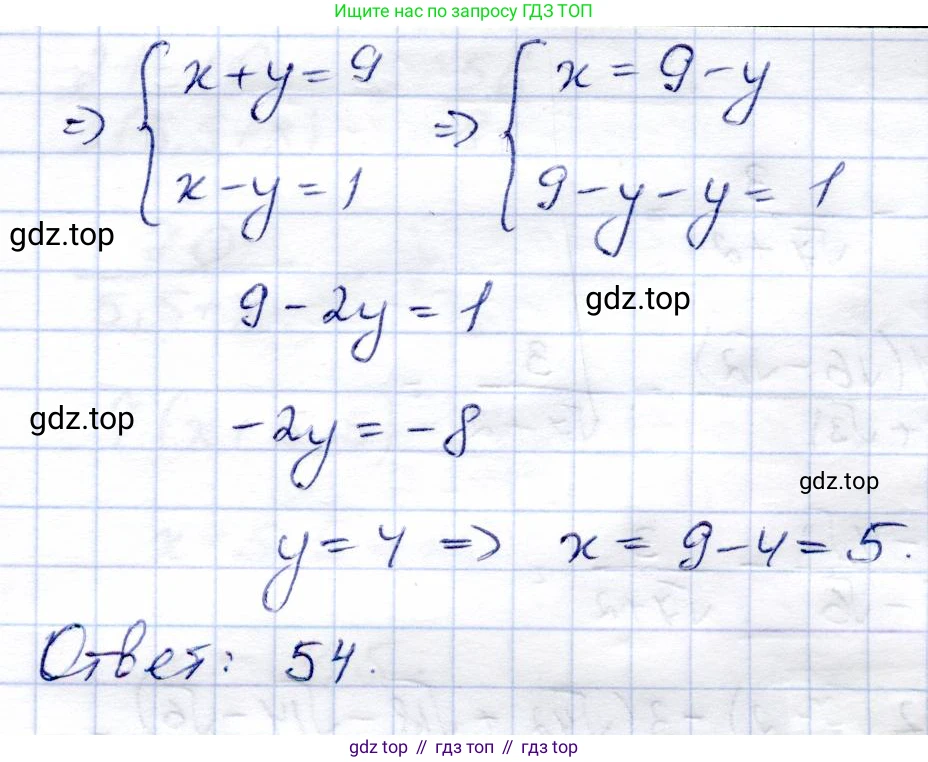 Ищите нас по запросу ГДЗ ТОП
⇒ { x + y = 9 ⇒ { x = 9 - y
x - y = 1 9 - y - y = 1
gdz.top
9 - 2y = 1 gdz.top
gdz.top -2y = -8
gdz.top
y = 4 ⇒ x = 9 - 4 = 5.
Ответ: 54.
gdz.top // гдз топ // gdz.top